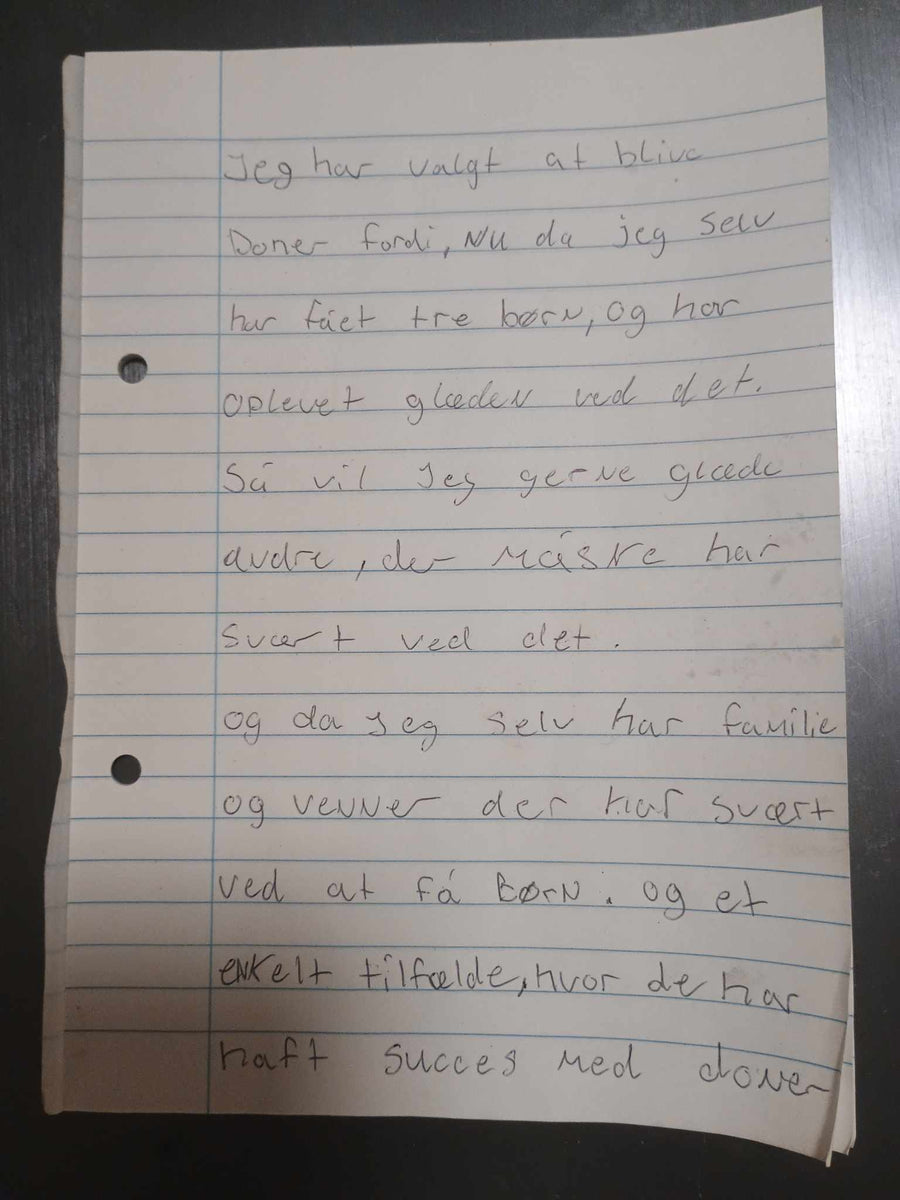 Jeg har valgt at blive
Doner fordi, Nu da jeg selv
har fået tre børn, og har
oplevet glæden ved det.
Så vil Jeg gerne glæde
andre, der måske har
svært ved det.
og da Jeg selv har familie
og venner der har svært
ved at få børn. og et
enkelt tilfælde, hvor de har
haft succes med doner